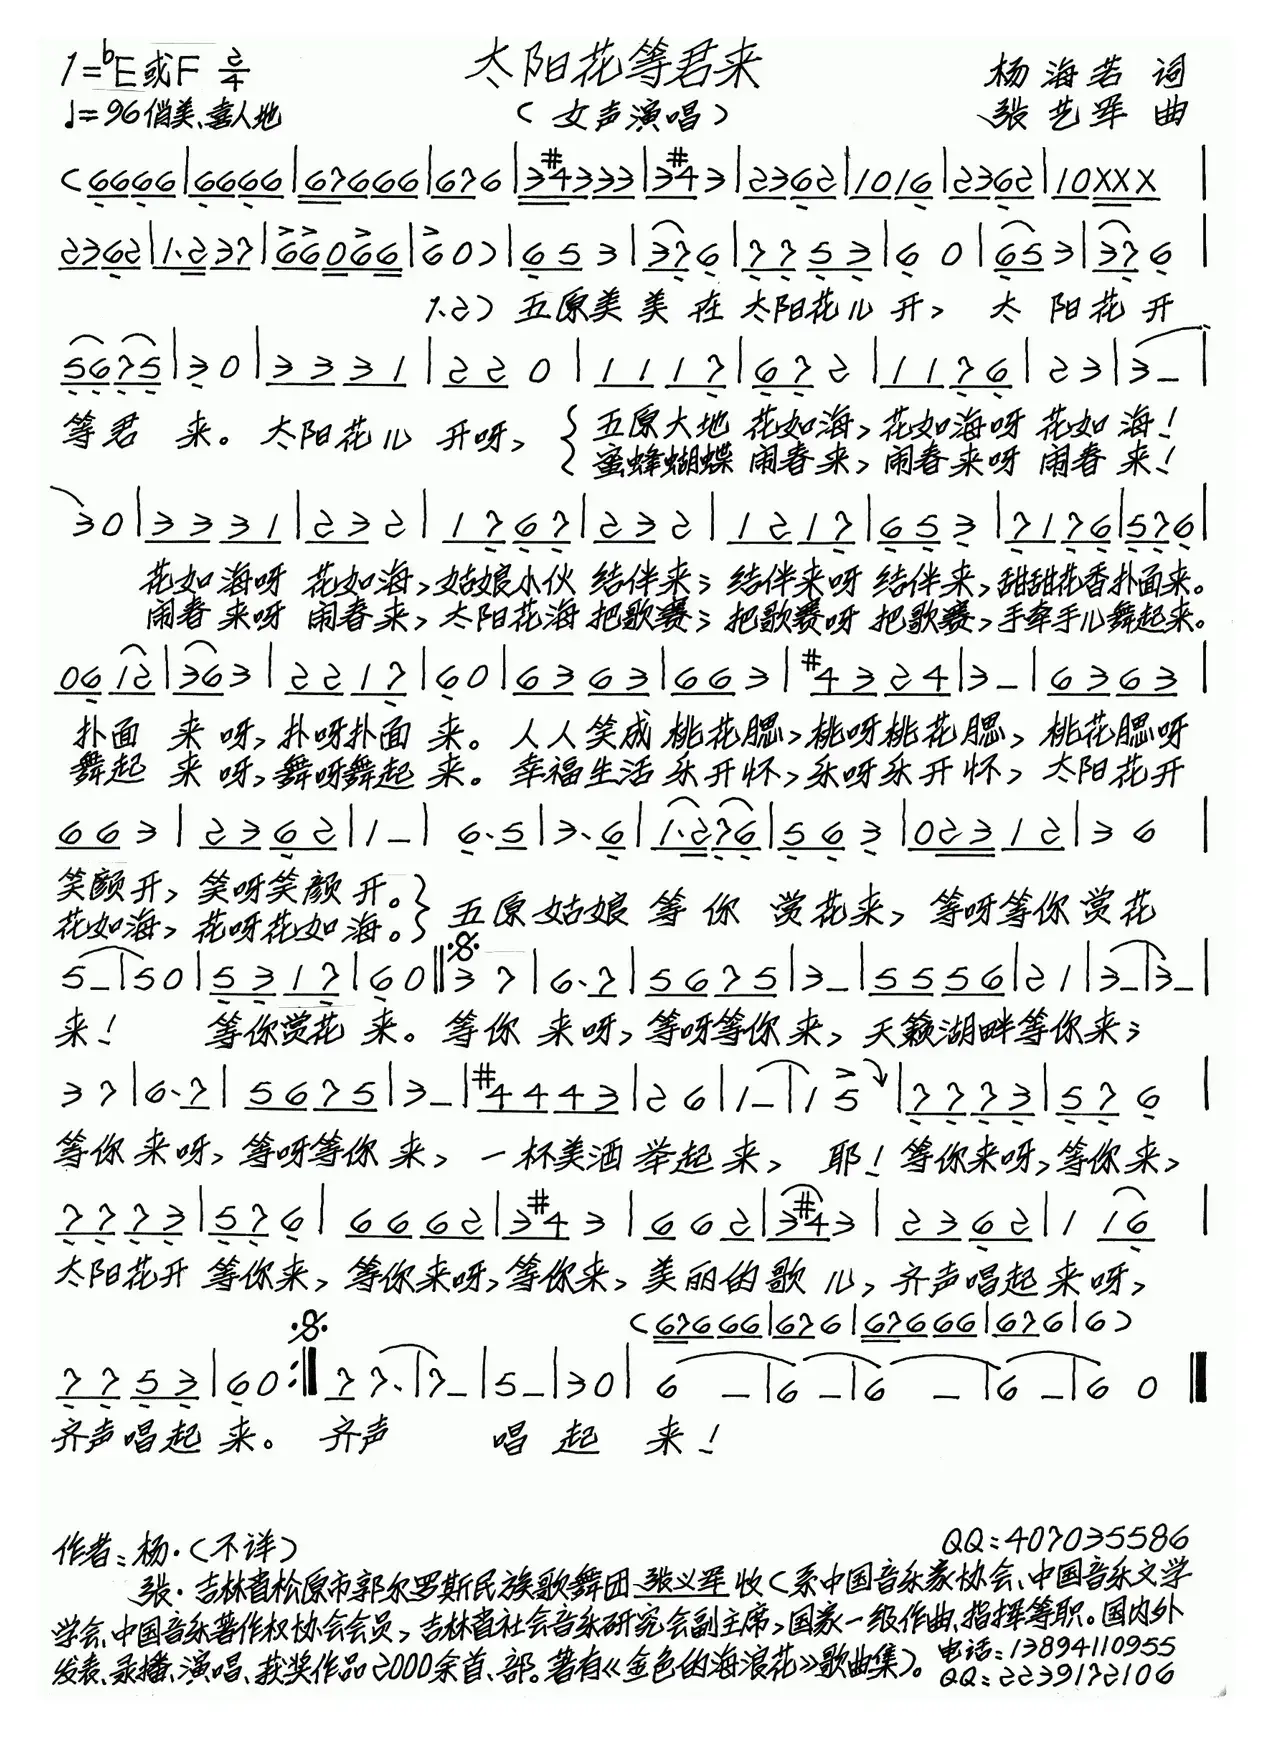 1=♭E或F 2/4
太阳花等君来
杨海若 词
♩=96 俏美、喜人地
(女声演唱)
张艺军 曲
(6666|6666|67666|676|3#4333|3#43|2362|1016|2362|10XXX|
2362|1.237|66066|60)|653|376|7753|60|653|376|
1.2) 五原美 美 在 太阳花儿 开, 太 阳花 开
5675|30|3331|220|1117|672|1176|23|3–|
等君 来。 太阳花儿 开呀, {五原大地 花如海, 花如海呀 花如 海!
{蜜蜂蝴蝶 闹春来, 闹春来呀 闹春 来!
30|3331|232|1767|232|1217|653|7176|576|
花如海呀 花如海, 姑娘小伙 结伴来; 结伴来呀 结伴来, 甜甜花香扑面来。
闹春来呀 闹春来, 太阳花海 把歌赛; 把歌赛呀 把歌赛, 手牵手儿舞起来。
0612|363|2217|60|6363|663|#4324|3–|6363|
扑面 来 呀, 扑呀扑面 来。 人人笑成 桃花腮, 桃呀桃花 腮, 桃花腮呀
舞起 来 呀, 舞呀舞起 来。 幸福生活 乐开怀, 乐呀乐开 怀, 太阳花开
663|2362|1–|6.5|3.6|1.276|563|02312|36|
笑颜开, 笑呀笑颜 开。}
花如海, 花呀花如 海。} 五原姑娘 等 你 赏花来, 等呀等你 赏花
5–|50|5317|60‖𝄋37|6.7|5675|3–|5556|21|3–|3–|
来! 等你赏花 来。 等你 来呀, 等呀等你 来, 天籁湖畔等你来;
37|6.7|5675|3–|#4443|26|1–|15|7773|576|
等你 来呀, 等呀等你 来, 一杯美酒 举起 来, 耶! 等你来呀, 等你来,
7773|576|6662|3#43|662|3#43|2362|116|
太阳花开 等你来, 等你来呀, 等你来, 美丽的歌 儿, 齐声唱起 来呀,
(67666|676|67666|676|6)
7753|60:‖𝄋77.|7–|5–|30|6–|6–|6–|6–|60‖
齐声唱起 来。 齐声 唱 起 来!
作者: 杨·(不详)
QQ:407035586
张·吉林省松原市郭尔罗斯民族歌舞团 张义军 收(系中国音乐家协会、中国音乐文学
学会、中国音乐著作权协会会员, 吉林省社会音乐研究会副主席, 国家一级作曲、指挥等职。国内外
发表、录播、演唱、获奖作品2000余首、部。著有《金色的海浪花》歌曲集)。 电话:13894110955
QQ:2239172106